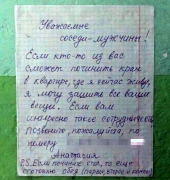 Уважаемые
соседи-мужчины!
Если кто-то из вас
сможет починить кран
в квартире, где я сейчас живу,
я могу зашить все ваши
вещи. Если вам
интересно такое сотрудничество
Позвоните, пожалуйста, по
номеру
Анастасия.
P.S. Если почине стол, то еще
приготовлю обед (первое, второе и компот)